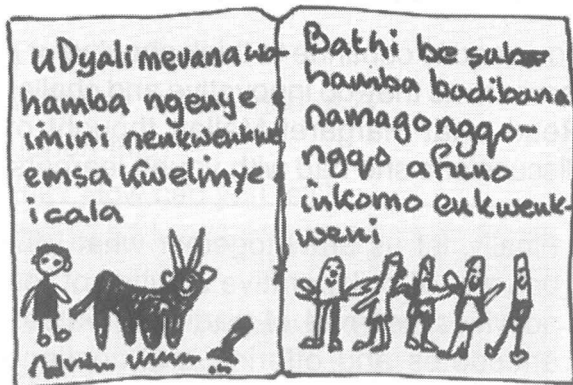 uDyalimevana wa-
hamba ngenye
imini nenkwenkwe
emsa kwelinye
icala
Bathi besah
hamba badibana
namagongqo-
ngqo afuno
inkomo enkwenk-
weni